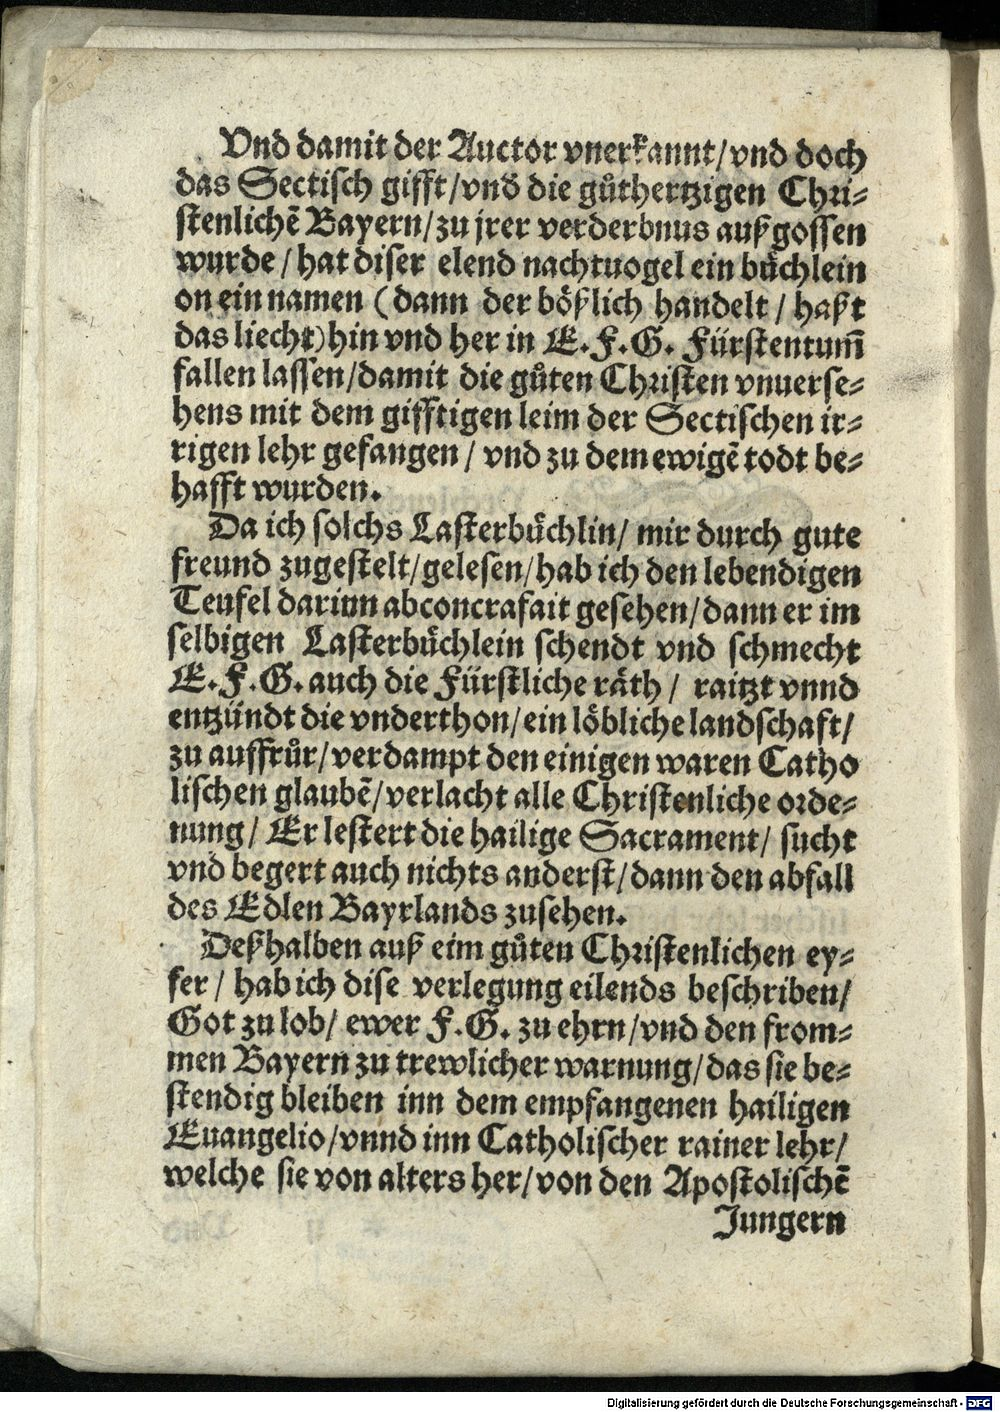 Vnd damit der Auctor vnerkannt/vnd doch
das Sectisch gifft/vnd die gůthertzigen Chri-
stenlichē Bayern/zu jrer verderbnus außgossen
wurde/hat diser elend nachtuogel ein bůchlein
on ein namen (dann der bößlich handelt/haßt
das liecht) hin vnd her in E.F.G. Fürstentum̄
fallen lassen/damit die gůten Christen vnuerse-
hens mit dem gifftigen leim der Sectischen ir-
rigen lehr gefangen/vnd zu dem ewigē todt be-
hafft wurden.
Da ich solchs Lasterbůchlin/mir durch gute
freund zugestelt/gelesen/hab ich den lebendigen
Teufel darinn abconcrafait gesehen/dann er im
selbigen Lasterbůchlein schendt vnd schmecht
E.F.G. auch die Fürstliche räth/raitzt vnnd
entzündt die vnderthon/ein löbliche landschaft/
zu auffrůr/verdampt den einigen waren Catho
lischen glaubē/verlacht alle Christenliche orde-
nung/Er lestert die hailige Sacrament/sucht
vnd begert auch nichts anderst/dann den abfall
des Edlen Bayrlands zusehen.
Deßhalben auß eim gůten Christenlichen ey-
fer/hab ich dise verlegung eilends beschriben/
Got zu lob/ewer F.G. zu ehrn/vnd den from-
men Bayern zu trewlicher warnung/das sie be-
stendig bleiben inn dem empfangenen hailigen
Euangelio/vnnd inn Catholischer rainer lehr/
welche sie von alters her/von den Apostolischē
Jungern
Digitalisierung gefördert durch die Deutsche Forschungsgemeinschaft - DFG